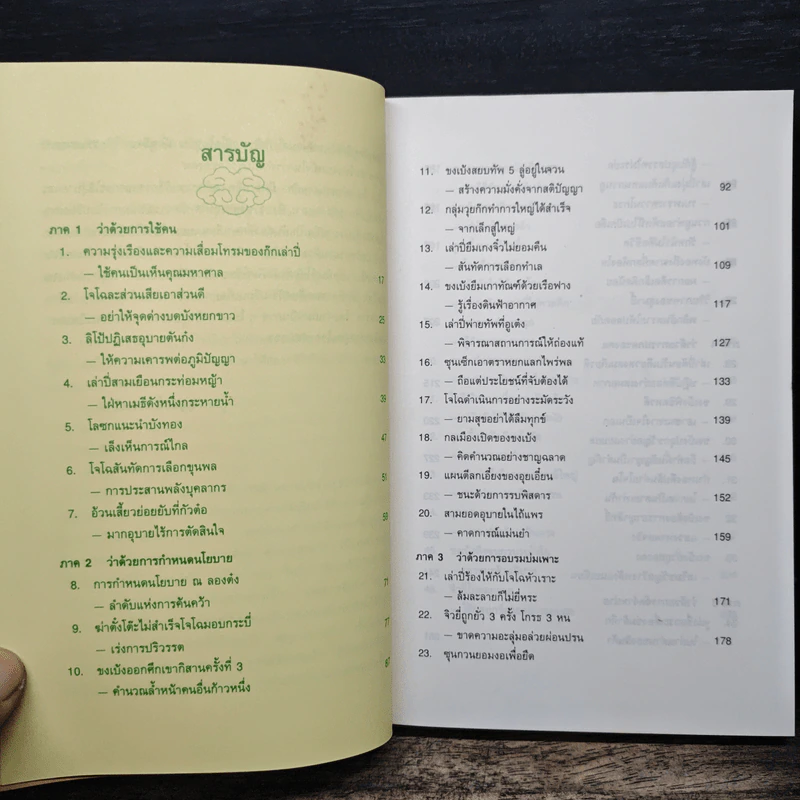 สารบัญ
ภาค 1 ว่าด้วยการใช้คน
1. ความรุ่งเรืองและความเสื่อมโทรมของก๊กเล่าปี่
– ใช้คนเป็นเห็นคุณมหาศาล 17
2. โจโฉละส่วนเสียเอาส่วนดี
– อย่าให้จุดด่างบดบังหยกขาว 25
3. ลิโป้ปฏิเสธอุบายตันก๋ง
– ให้ความเคารพต่อภูมิปัญญา 33
4. เล่าปี่สามเยือนกระท่อมหญ้า
– ใฝ่หาเมธีดังหนึ่งกระหายน้ำ 39
5. โลซกแนะนำบังทอง
– เล็งเห็นการณ์ไกล 47
6. โจโฉสันทัดการเลือกขุนพล
– การประสานพลังบุคลากร 51
7. อ้วนเสี้ยวย่อยยับที่กัวต๋อ
– มากอุบายไร้การตัดสินใจ 59
ภาค 2 ว่าด้วยการกำหนดนโยบาย
8. การกำหนดนโยบาย ณ ลองต๋ง 71
– ลำดับแห่งการค้นคว้า
9. ฆ่าตั๋งโต๊ะไม่สำเร็จโจโฉมอบกระบี่ 77
– เร่งการปริวรรต
10. ขงเบ้งออกศึกเขากิสานครั้งที่ 3 87
– คำนวณล้ำหน้าคนอื่นก้าวหนึ่ง
11. ขงเบ้งสยบทัพ 5 ลู่อยู่ในจวน
– สร้างความมั่งคั่งจากสติปัญญา 92
12. กลุ่มวุยก๊กทำการใหญ่ได้สำเร็จ
– จากเล็กสู่ใหญ่ 101
13. เล่าปี่ยืมเกงจิ๋วไม่ยอมคืน
– สันทัดการเลือกทำเล 109
14. ขงเบ้งยืมเกาทัณฑ์ด้วยเรือฟาง
– รู้เรื่องดินฟ้าอากาศ 117
15. เล่าปี่พ่ายทัพที่อูเต๋ง
– พิจารณาสถานการณ์ให้ถ่องแท้ 127
16. ซุนเซ็กเอาตราหยกแลกไพร่พล
– ถือแต่ประโยชน์ที่จับต้องได้ 133
17. โจโฉดำเนินการอย่างระมัดระวัง
– ยามสุขอย่าได้ลืมทุกข์ 139
18. กลเมืองเปิดของขงเบ้ง
– คิดคำนวณอย่างชาญฉลาด 145
19. แผนตีลกเอี๋ยงของอุยเอี๋ยน
– ชนะด้วยการรบพิสดาร 152
20. สามยอดอุบายในไถ้แพร
– คาดการณ์แม่นยำ 159
ภาค 3 ว่าด้วยการอบรมบ่มเพาะ
21. เล่าปี่ร้องไห้กับโจโฉหัวเราะ
– ล้มละลายก็ไม่ยี่หระ 171
22. จิวยี่ถูกยั่ว 3 ครั้ง โกรธ 3 หน
– ขาดความอะลุ่มอล่วยผ่อนปรน 178
23. ซุนกวนยอมงอเพื่อยืด